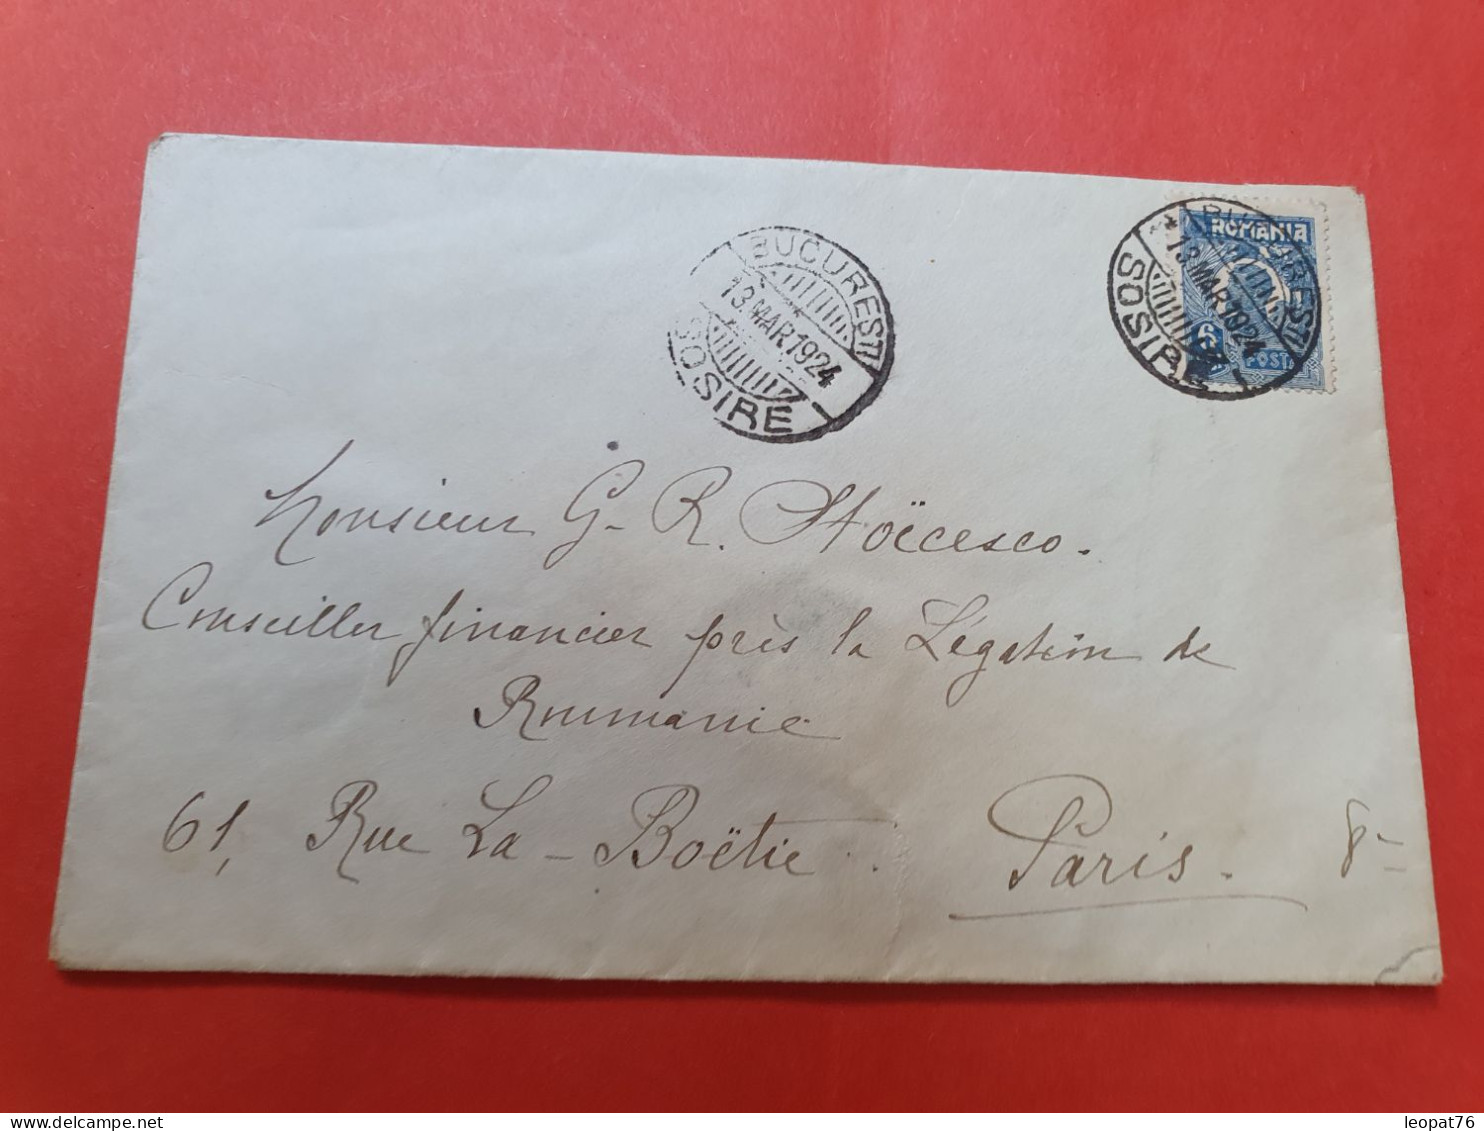 BUCURESTI
13 MAR 1924
SOSIRE
BUCURESTI
13 MAR 1924
SOSIRE
ROMANIA
6
POSTA
Monsieur G. R. Stoïcesco.
Conseiller financier près la Légation de
Roumanie
61, Rue La-Boëtie. Paris.
leopat76